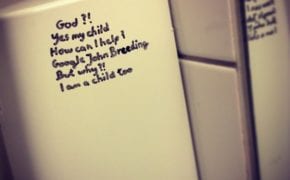 God ?!
Yes my child
How can I help ?
Google John Breeding
But why ?!
I am a child too